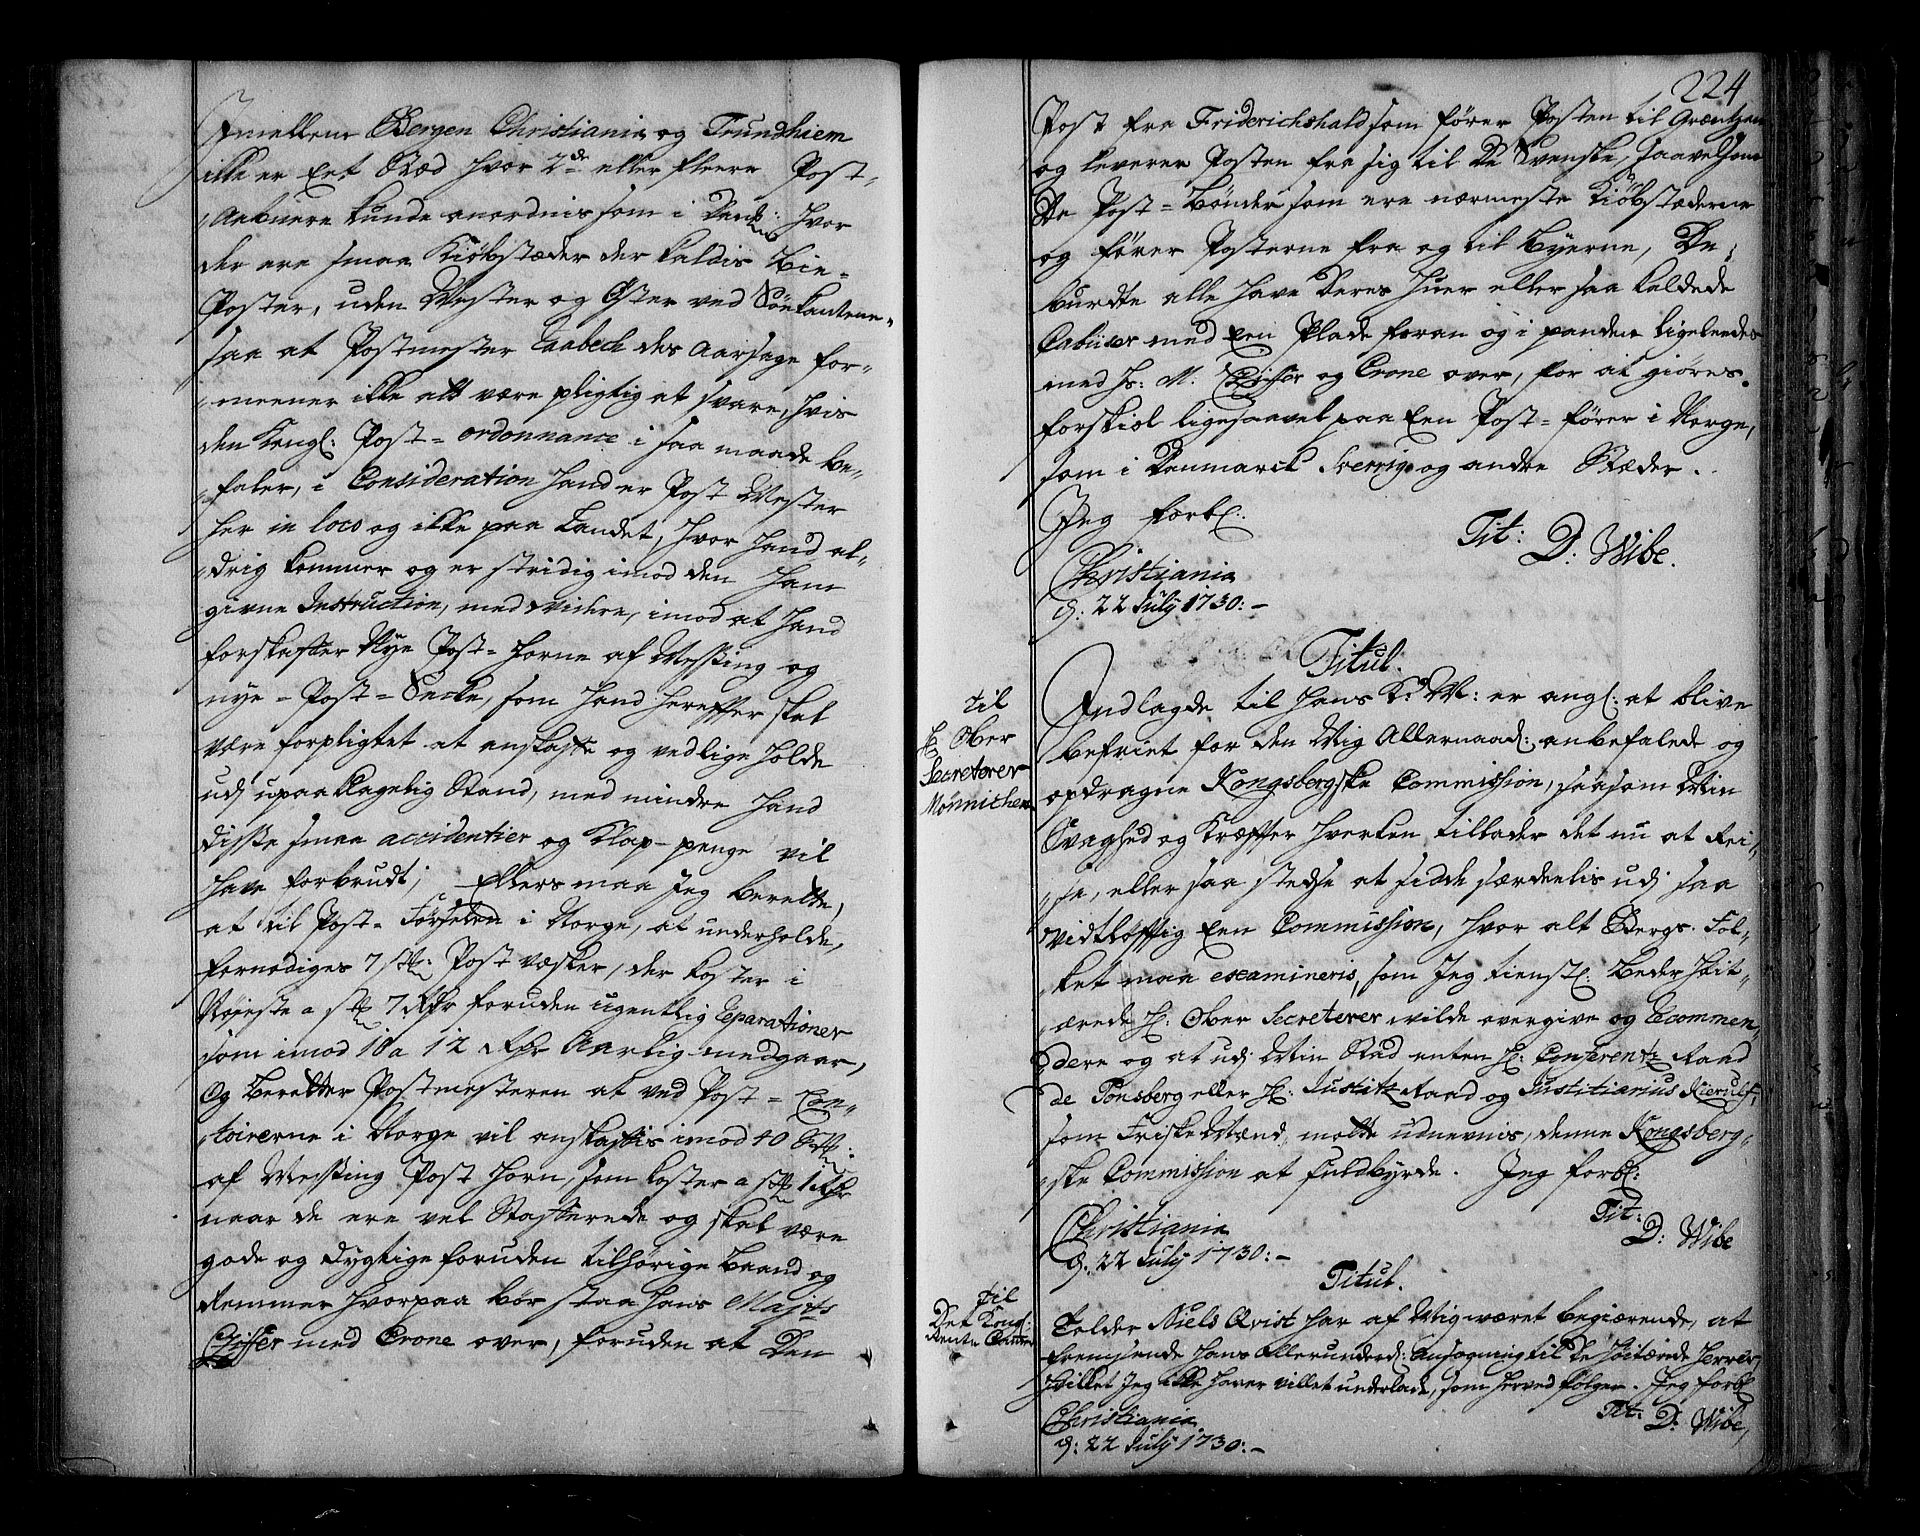 Imellem Bergen Christiania og Trundhiem
ikke er Eet Stæd hvor 2de eller fleere Post-
Aabnere kunde anordnis som i Dank: hvor
der ere smaa Kiøbstæder der kaldis Bie-
Poster, uden Wester og Øster ved Søekanterne
saa at Postmester des Aarsage for-
meener ikke att være pligtig at svare, hvis
den Kongl: Post-ordonnance i saa maade be-
faler, i Consideration hand er Post Mester
her in loco og ikke paa Landet, hvor hand al-
drig kommer og er stridig imod den ham
givne Instruction, med videre, imod at hand
forskaffer Nye Post-Horne af Messing og
nye-Post-Secke, som hand herefter skal
være forpligtet at anskaffe og vedlige holde
udj upaaklagelig Stand, med mindre hand
disse smaa accidentier og Klap-penge vil
have forbrudt; Ellers maa Jeg berette,
at til Post-Førselen i Norge, at underholde,
fornødiges 7 stk: Post væsker, der koster i
Nøieste a stk 7 Rdr foruden ugentlig Reparationer
som imod 10 a 12 Rdr Aarlig medgaar,
Og beretter Postmesteren at ved Post-Con-
toirerne i Norge vil anskaffis imod 40 Stk:
af Messing Post Horn, som koster a stk 1 Rdr
naar de ere vel Stafferede og skal være
gode og dygtige foruden tilhørige baand og
Remmer hvorpaa bør staa Hans Majts
Ciffer med Crone over, foruden at Den
224
Post fra Friderichshald som fører Posten til Grentzen
og leverer Posten fra sig til de Svenske, saavelsom
De Post-bønder som ere nærmeste Kiøbstæderne
og fører Posterne fra og til Byerne, De
burdte alle have Deres Huer eller saa kaldede
Cabuser med Een Plade foran og i panden ligeleedes
med Hs: M. Ciffer og Crone over, for at giøres
forskiel ligesaavel paa Een Post-fører i Norge,
som i Danmarck Sverrig og andre Stæder.
Jeg forbl:
Tit: D: Wibe.
Christiania
d: 22 July 1730:-
Titul.
til
H Ober
Secreterer
Mønnichen
Indlagde til Hans K. M: er angl: at blive
befriet for den Mig Allernaad: anbefalede og
opdragne Kongsbergske Commission, saasom Min
Svaghed og Kræffter hverken tillader det nu at Rei-
se, eller saa stedse at sidde særdeelis udj saa
vidtløfftig Een Commission, hvor alt Bergs-Fol-
ket maa examineris, som Jeg tienstl: beder Høit-
ærede H: Ober Secreterer vilde overgive og Recommen-
dere og at udj Min Stæd enten H: Conferentz Raad
de Tonsberg eller H: Justitz Raad og Justitiarius Kierulf,
som Friske Mænd, motte udnevnis, denne Kongsberg-
ske Commission at fuldbyrde. Jeg forbl:
Tit:
D: Wibe
Christiania
d: 22 July 1730:-
Titul.
til
Det Kongl:
Rente Cammer
Niels Qvist har af Mig været begiærende, at
fremsende Hans Allerunderd: Ansøgning til De Høitærede Herrer,
hvilket Jeg ikke haver villet underlade, som herved følger. Jeg forbl
Tit: D: Wibe,
Christiania
d: 22 July 1730:-